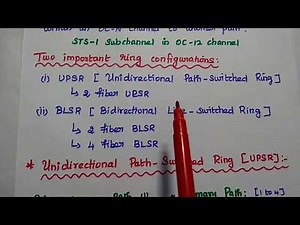 STS-1 Subchannel in OC-12 channel
Two important ring configurations:
(i) UPSR [ Unidirectional Path-Switched Ring ]
↳ 2 fiber UPSR
(ii) BLSR [ Bidirectional Switched Ring ]
↳ 2 fiber BLSR
↳ 4 fiber BLSR
* Unidirectional Path-Switched Ring [UPSR]:-
Path: [1 to 4]